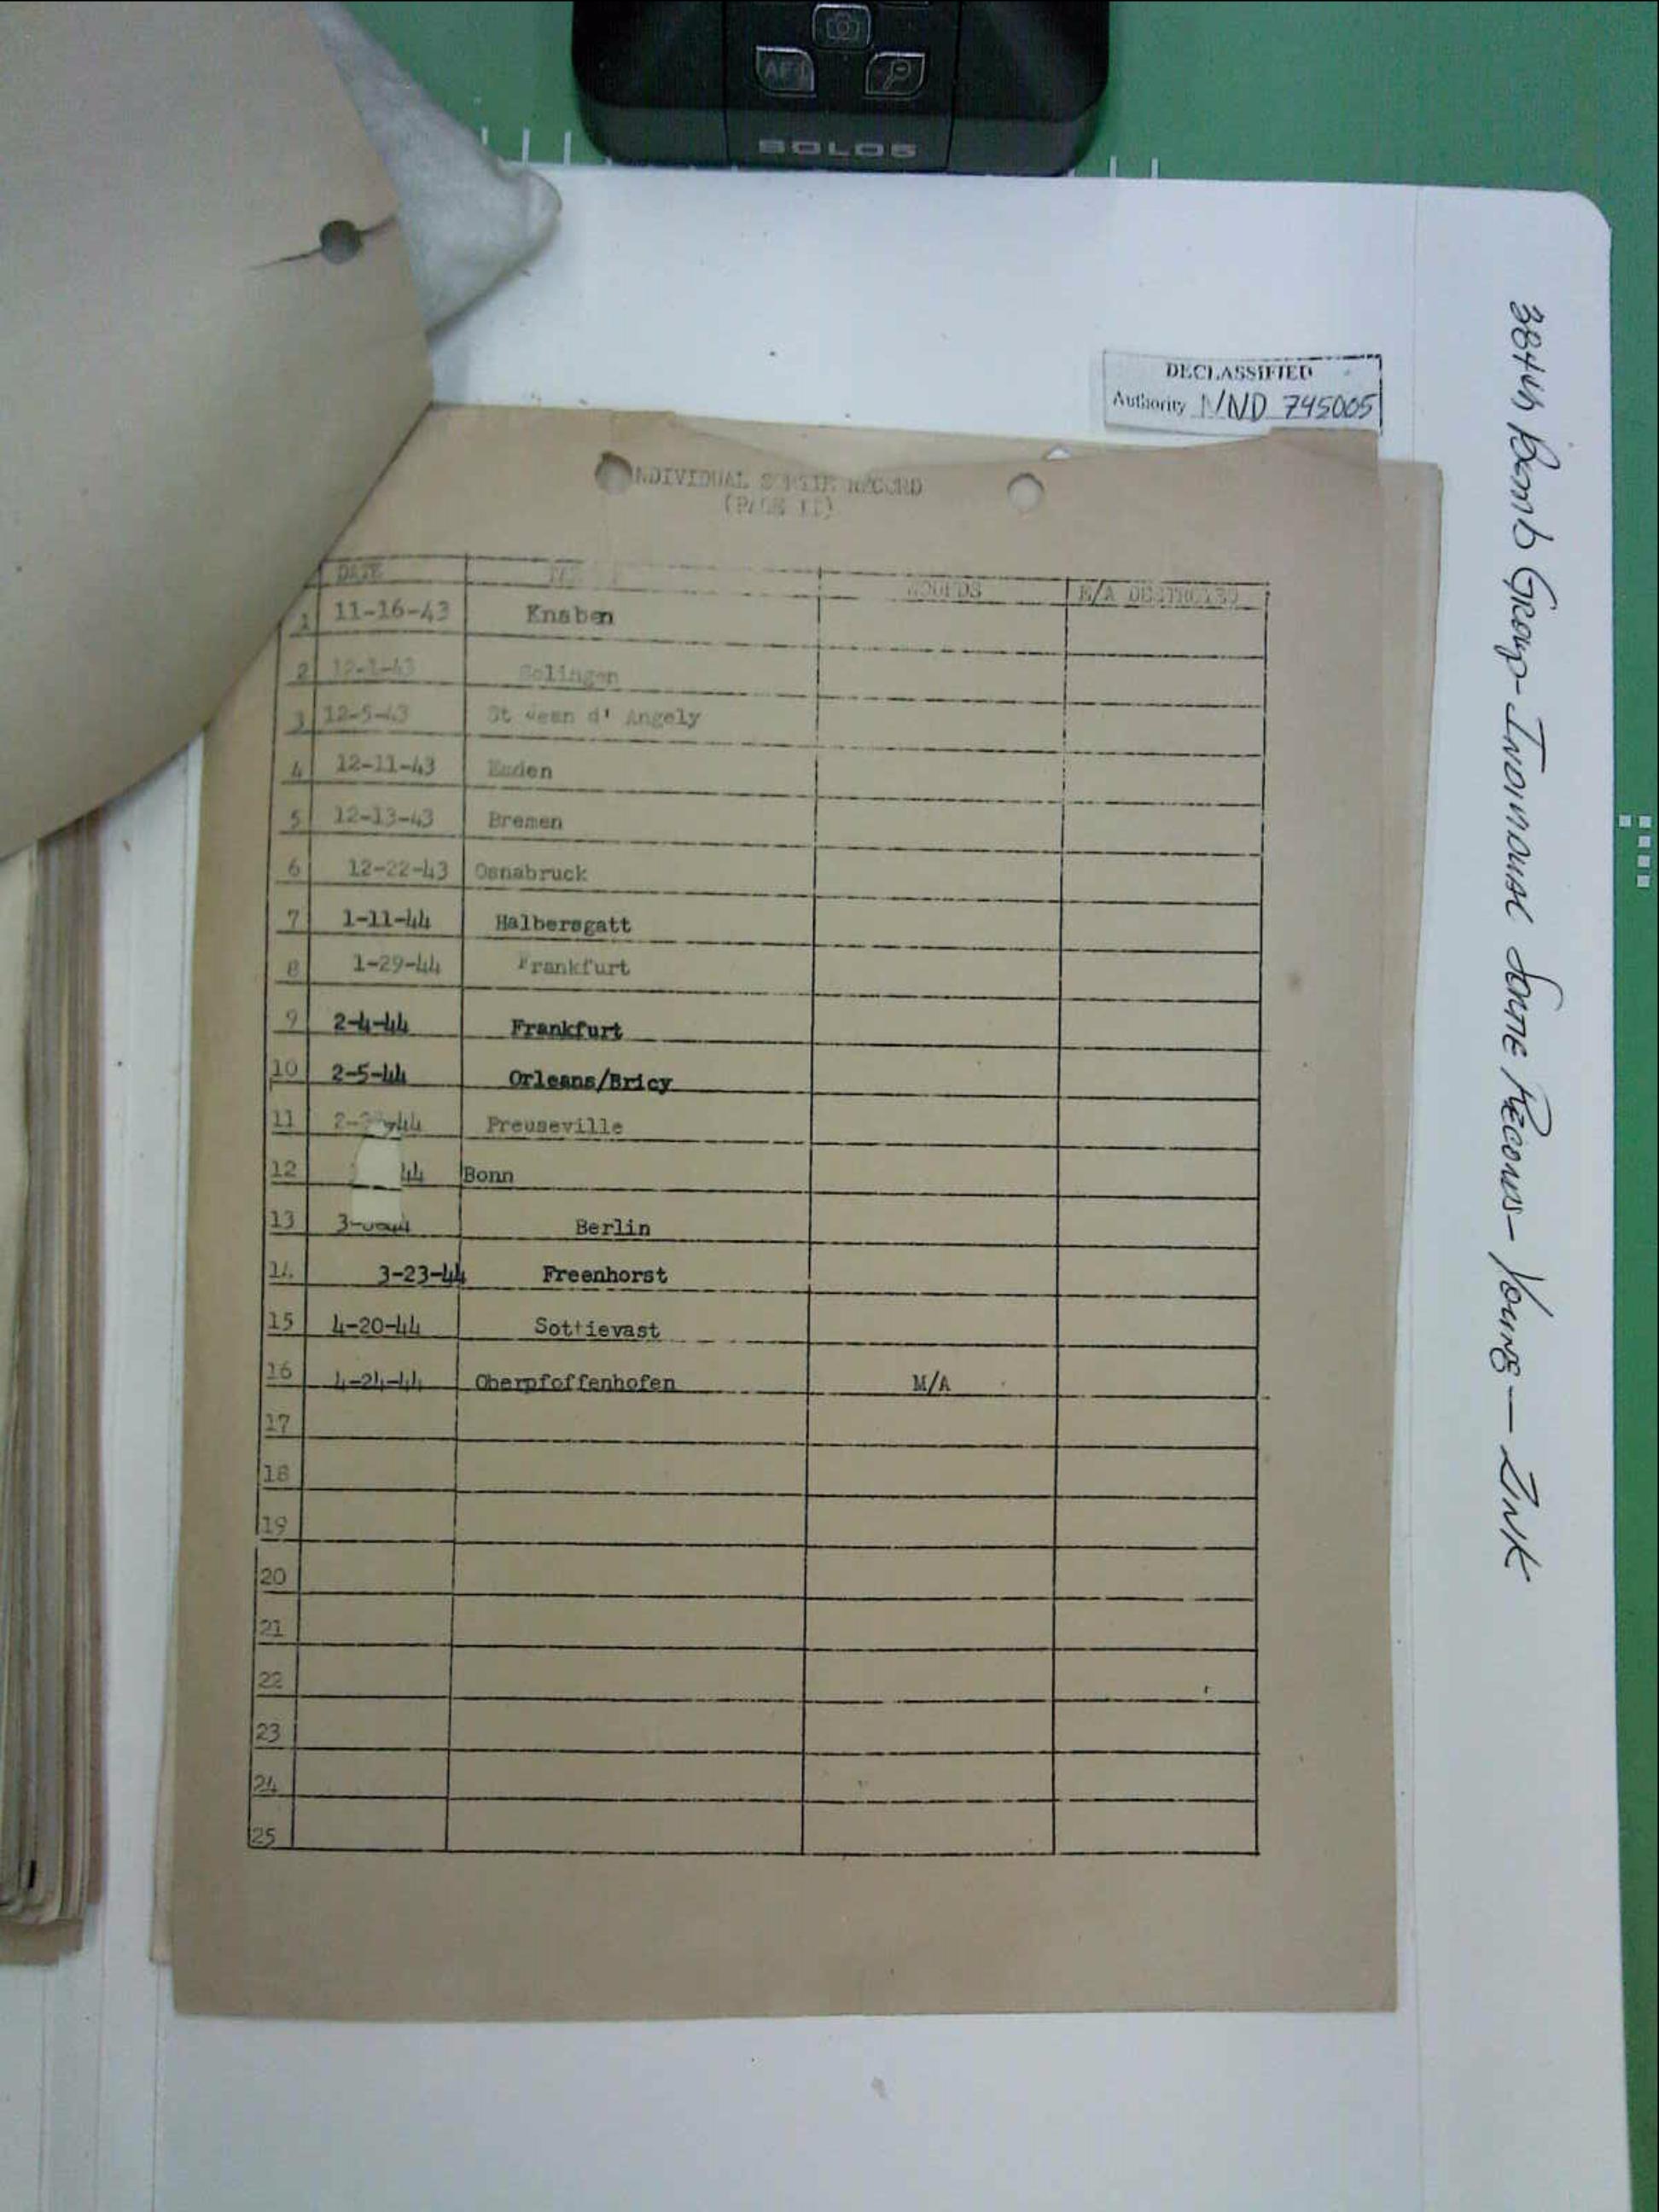 AF
SOLOS
DECLASSIFIED
Authority NND 745005
384th Bomb Group - Individual Sortie Records - Young — Zink
INDIVIDUAL SORTIE RECORD
(PAGE II)
DATE WOUNDS E/A DESTROYED
1 11-16-43 Knaben
2 12-1-43 Solingen
3 12-5-43 St Jean d' Angely
4 12-11-43 Emden
5 12-13-43 Bremen
6 12-22-43 Osnabruck
7 1-11-44 Halbersgatt
8 1-29-44 Frankfurt
9 2-4-44 Frankfurt
10 2-5-44 Orleans/Bricy
11 Preuseville
12 44 Bonn
13 Berlin
14 3-23-44 Freenhorst
15 4-20-44 Sottievast
16 4-24-44 Oberpfoffenhofen M/A
17
18
19
20
21
22
23
24
25